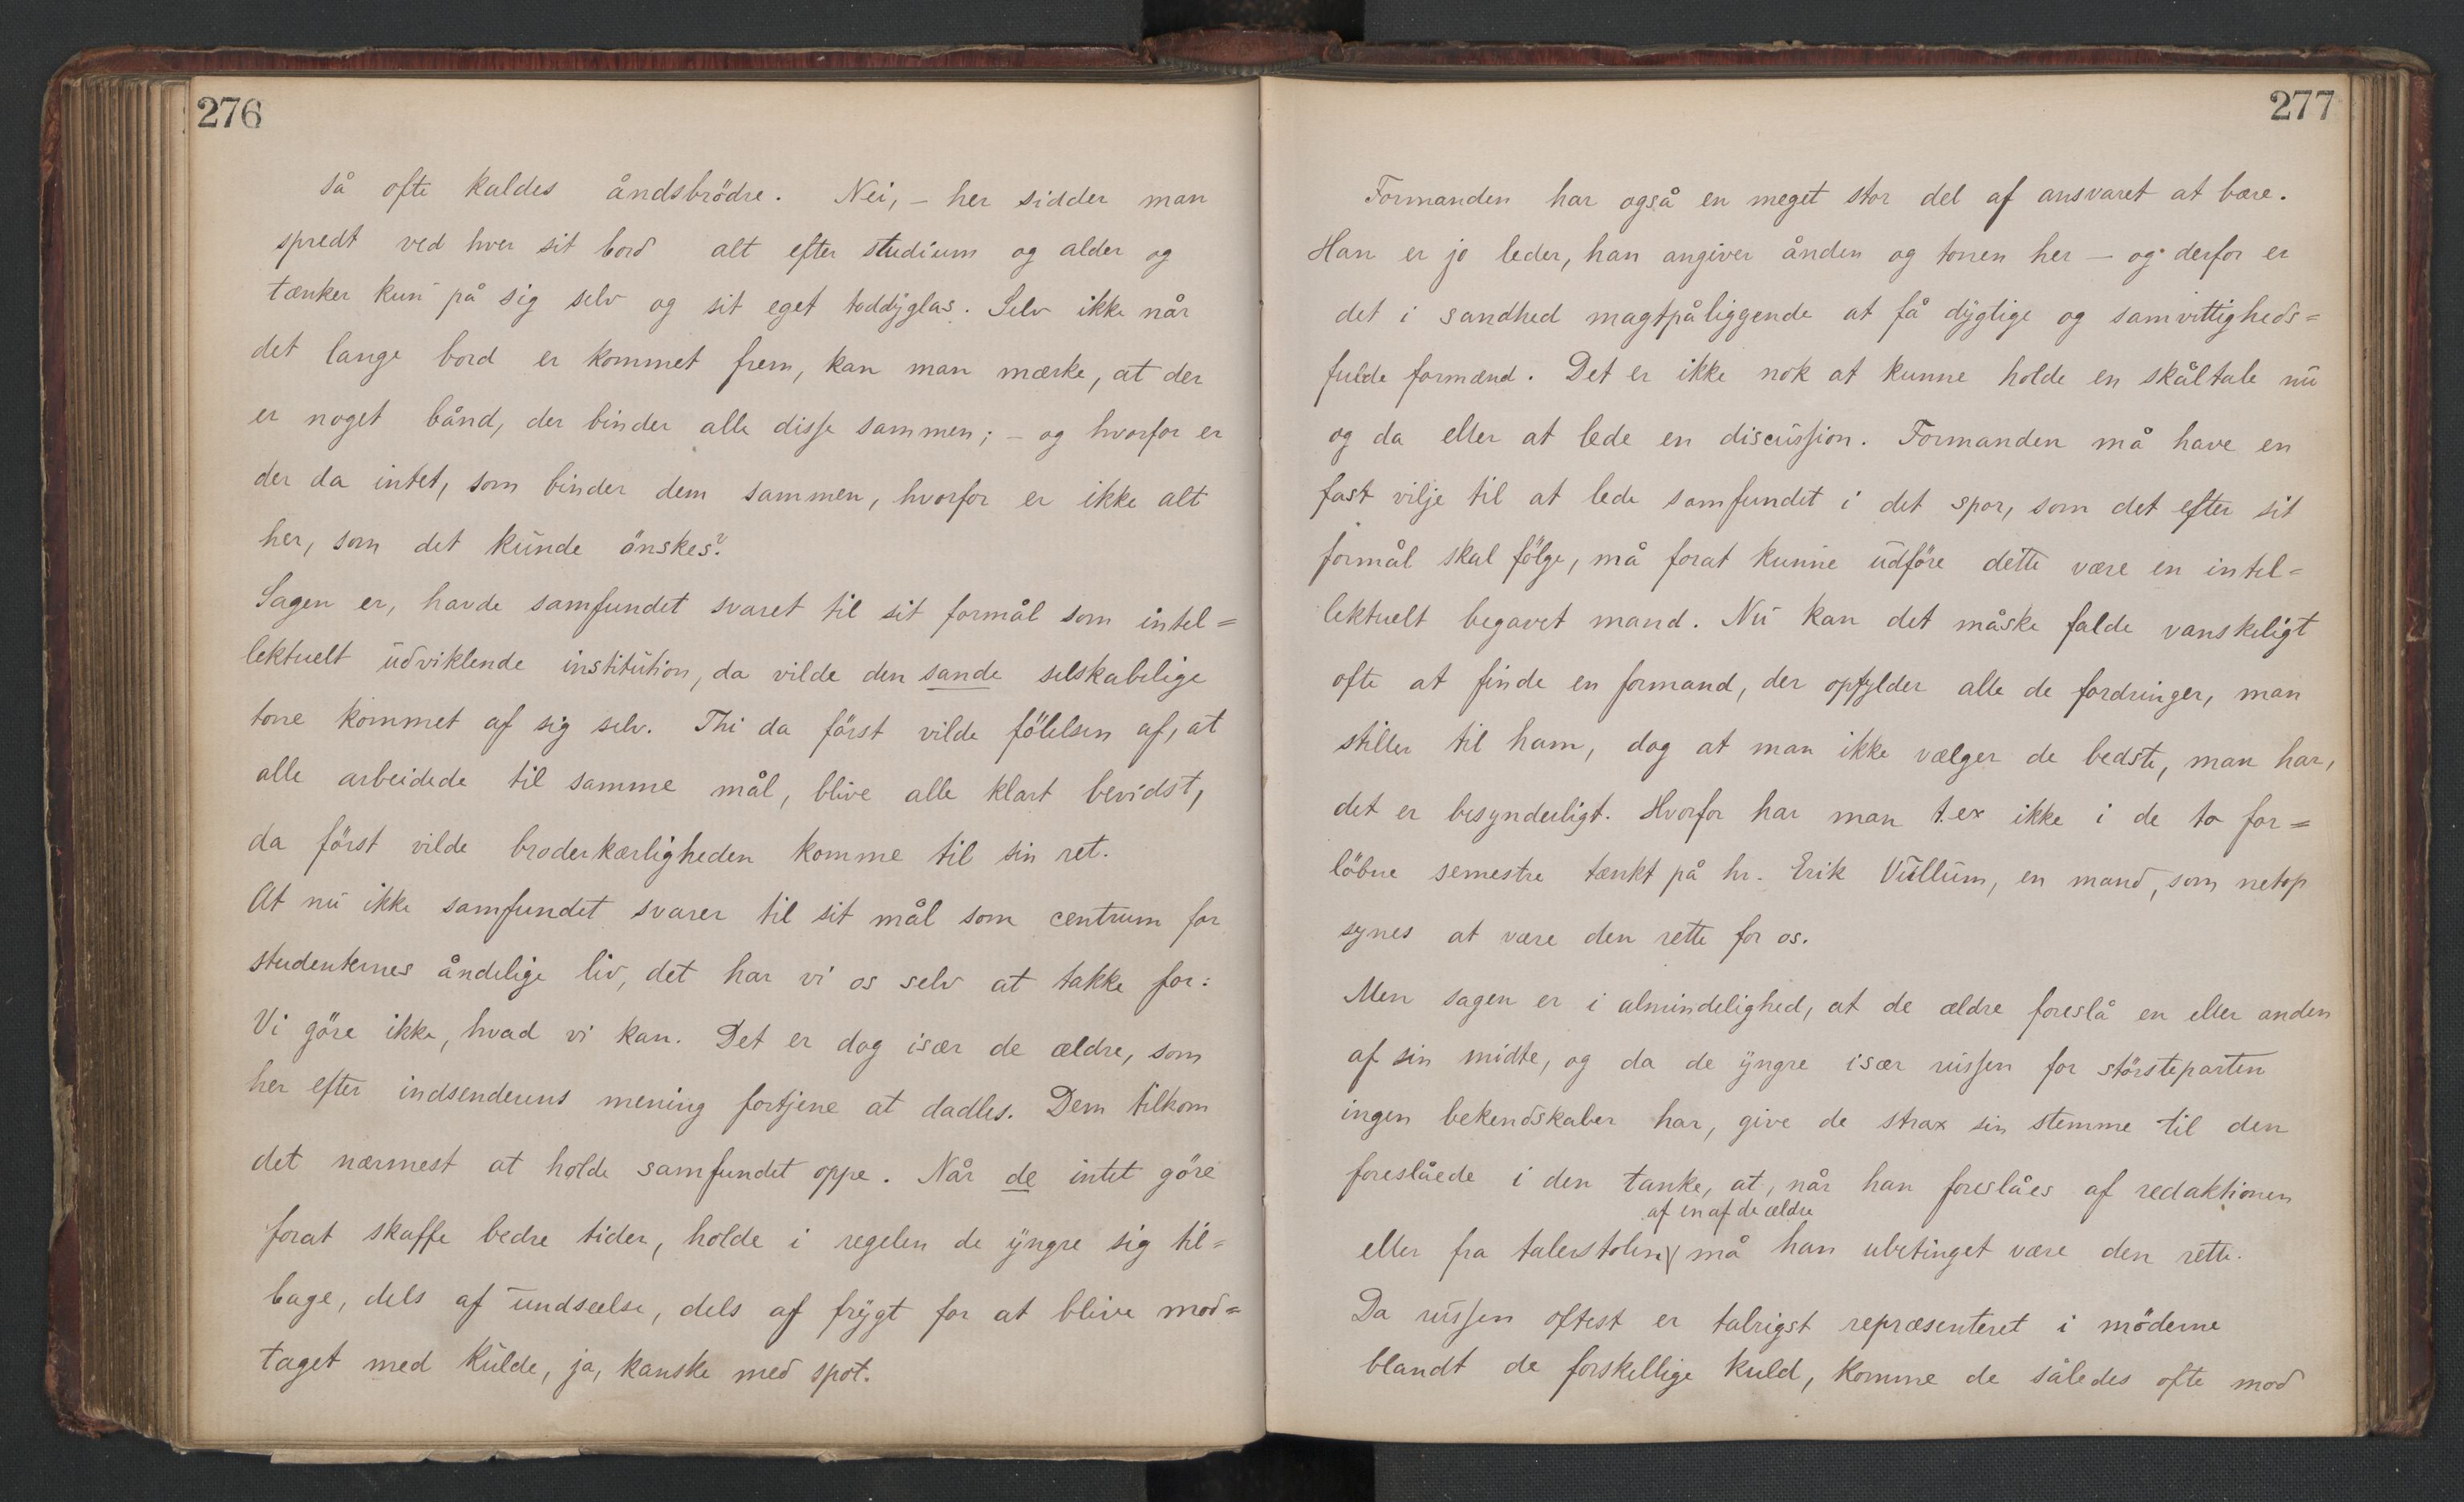 276
så ofte kaldes åndsbrödre. Nei, – her sidder man
spredt ved hver sit bord alt efter studium og alder og
tænker kun på sig selv og sit eget toddyglas. Selv ikke når
det lange bord er kommet frem, kan man mærke, at der
er noget bånd, der binder alle disse sammen; – og hvorfor er
der da intet, som binder dem sammen, hvorfor er ikke alt
her, som det kunde önskes?
Sagen er, havde samfundet svaret til sit formål som intel=
lektuelt udviklende institution, da vilde den sande selskabelige
tone kommet af sig selv. Thi da först vilde fölelsen af, at
alle arbeidede til samme mål, blive alle klart bevidst,
da först vilde broderkærligheden komme til sin ret.
At nu ikke samfundet svarer til sit mål som centrum for
studenternes åndelige liv, det har vi os selv at takke for:
Vi göre ikke, hvad vi kan. Det er dog især de ældre, som
her efter indsenderens mening fortjene at dadles. Dem tilkom
det nærmest at holde samfundet oppe. Når de intet göre
forat skaffe bedre tider, holde i regelen de yngre sig til=
bage, dels af undseelse, dels af frygt for at blive mod=
taget med kulde, ja, kanske med spot.
277
Formanden har også en meget stor del af ansvaret at bære.
Han er jo leder, han angiver ånden og tonen her – og derfor er
det i sandhed magtpåliggende at få dygtige og samvittigheds=
fulde formænd. Det er ikke nok at kunne holde en skåltale nu
og da eller at lede en discussion. Formanden må have en
fast vilje til at lede samfundet i det spor, som det efter sit
formål skal fölge, må forat kunne udföre dette være en intel=
lektuelt begavet mand. Nu kan det måske falde vanskeligt
ofte at finde en formand, der opfylder alle de fordringer, man
stiller til ham, dog at man ikke vælger de bedste, man har,
det er besynderligt. Hvorfor har man t.ex ikke i de to for=
löbne semestre tænkt på hr. Erik Vullum, en mand, som netop
synes at være den rette for os.
Men sagen er i almindelighed, at de ældre foreslå en eller anden
af sin midte, og da de yngre især russen for störsteparten
ingen bekendskaber har, give de strax sin stemme til den
foreslåede i den tanke, at, når han foreslåes af redaktionen
af en af de ældre
eller fra talerstolen må han ubetinget være den rette.
Da russen oftest er talrigst repræsenteret i möderne
blandt de forskellige kuld, komme de således ofte mod